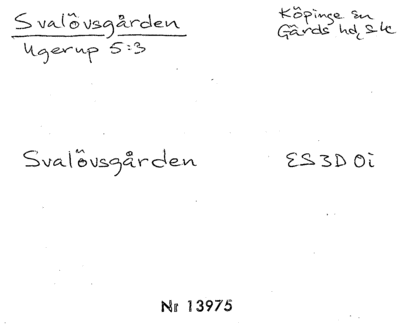 Svalövsgården
Ugerup 5:3
Köpinge sn
Gärds hd, Sk
Svalövsgården
ES3D0i
Nr 13975